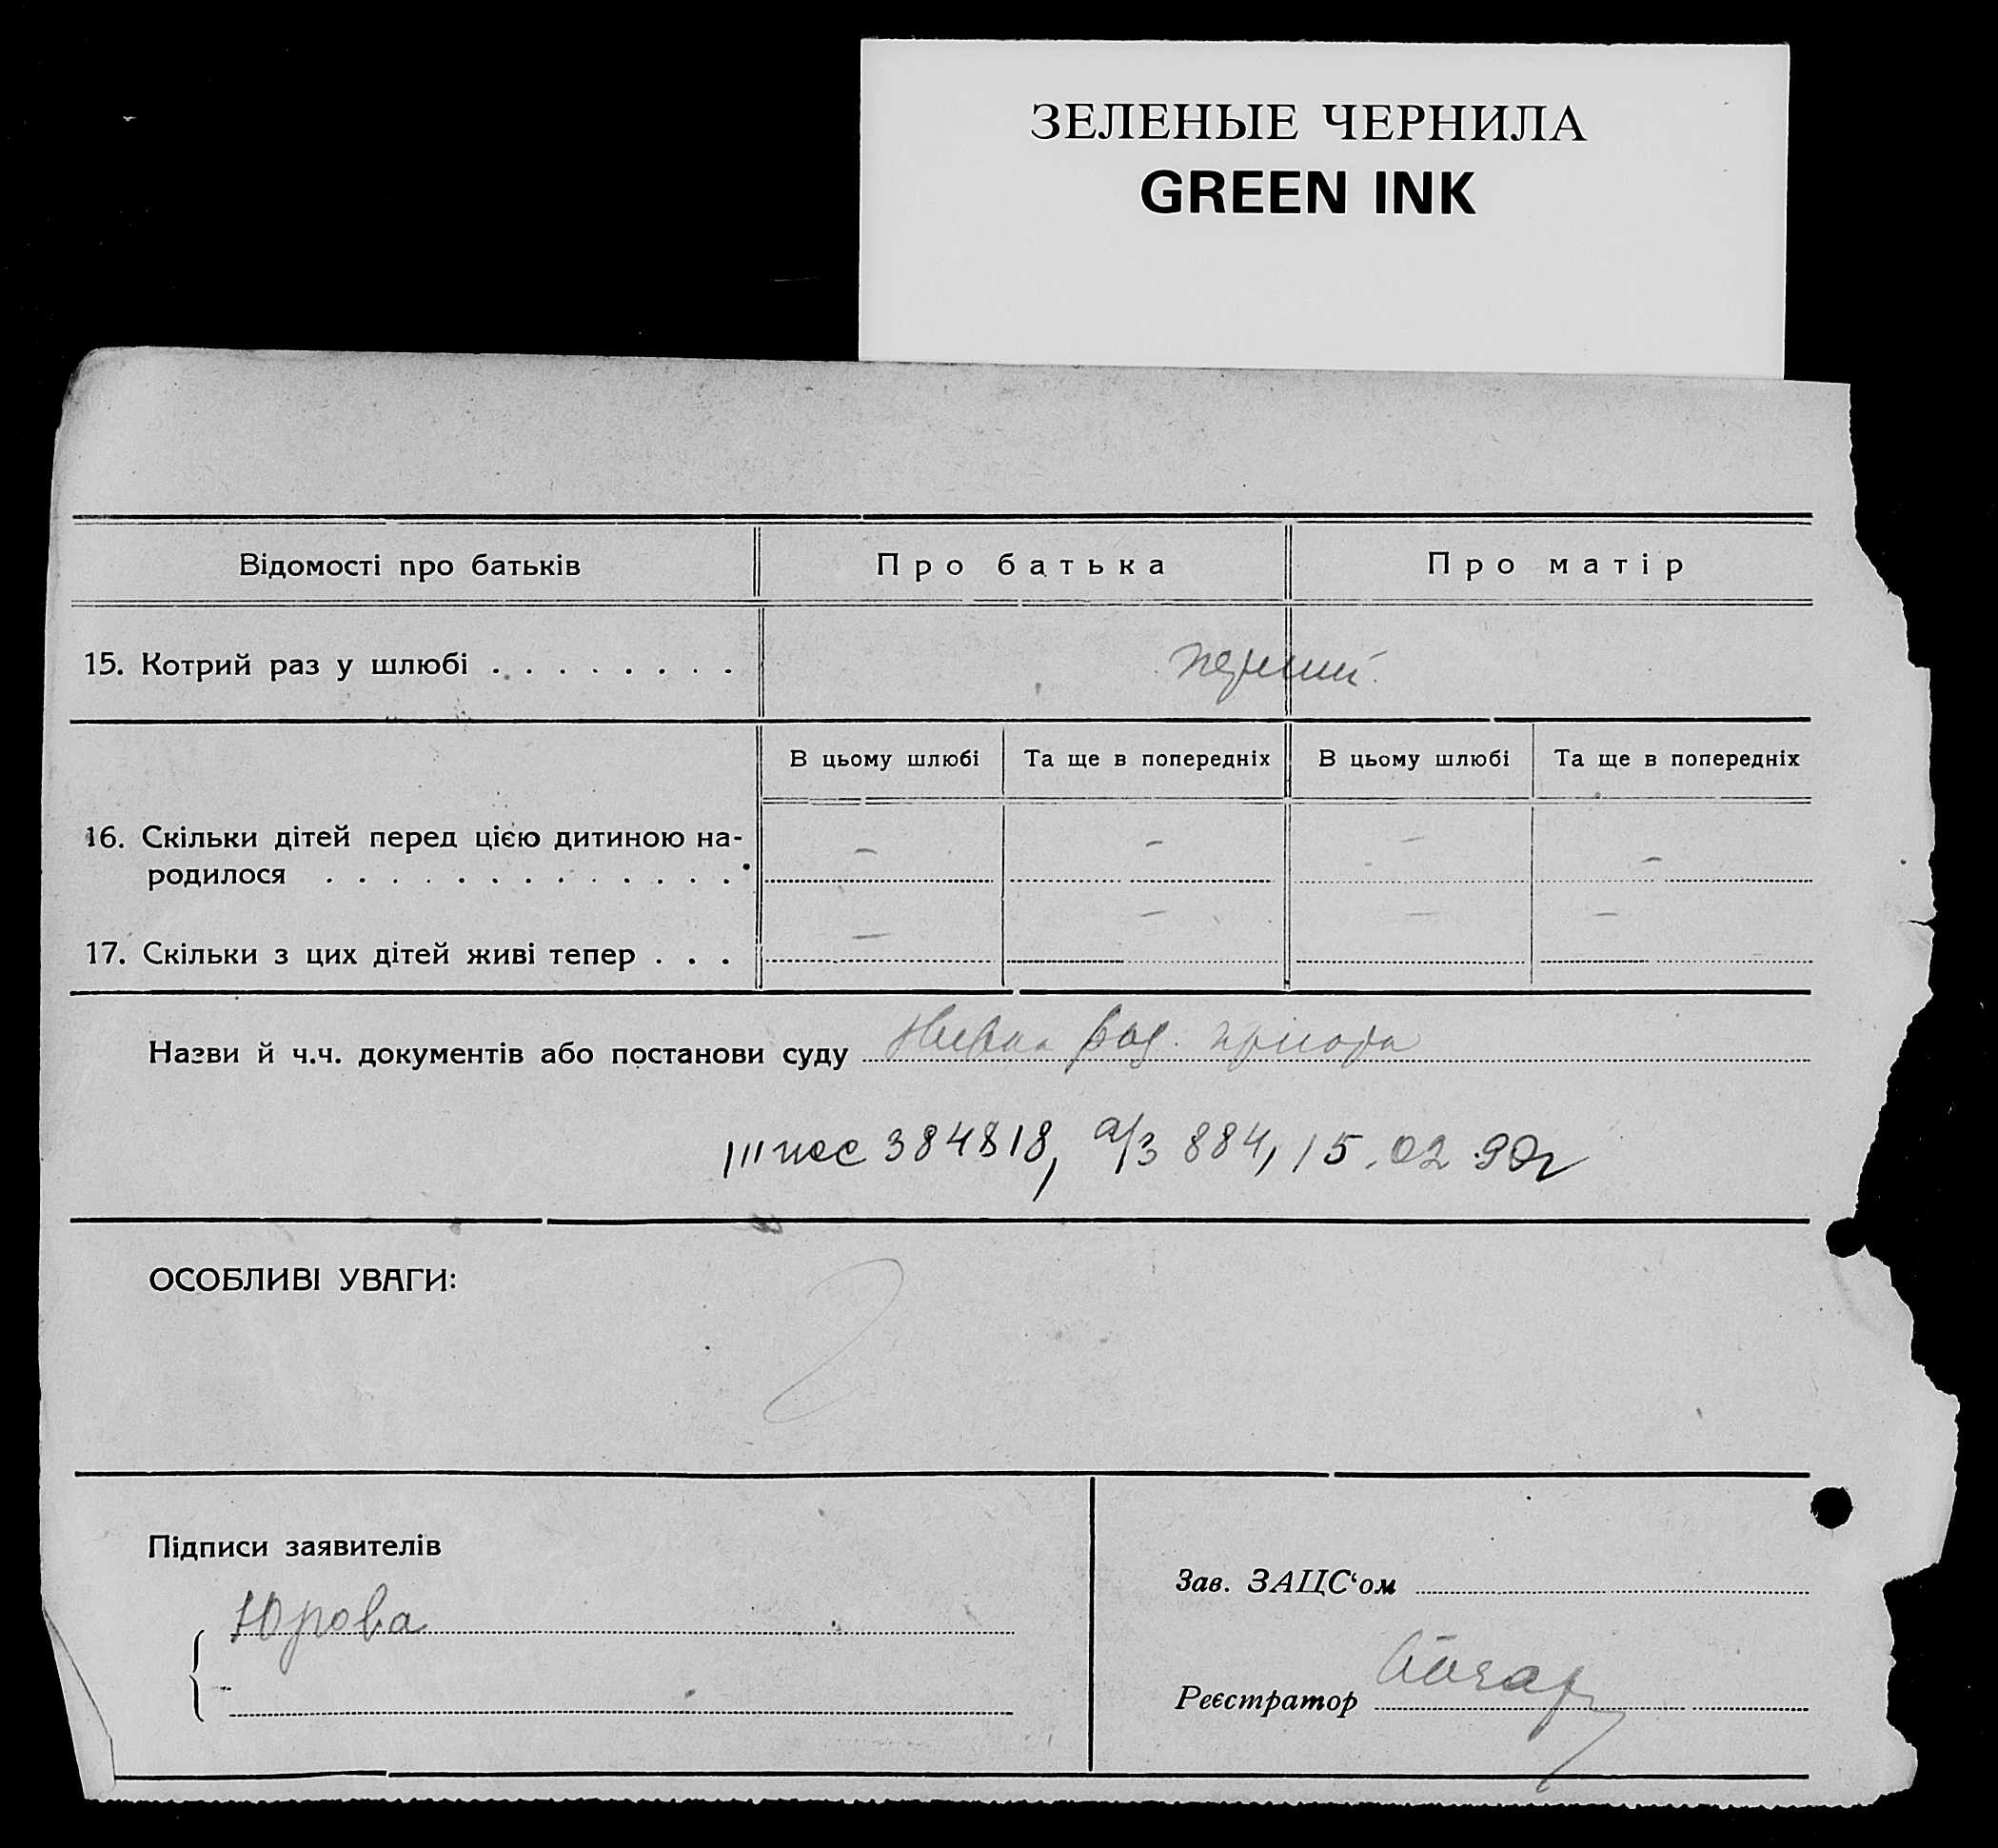 ЗЕЛЕНЫЕ ЧЕРНИЛА
GREEN INK
Відомості про батьків Про батька Про матір
15. Котрий раз у шлюбі . . . . . . . . перший
В цьому шлюбі Та ще в попередніх В цьому шлюбі Та ще в попередніх
16. Скільки дітей перед цією дитиною на-
родилося . . . . . . . . . . . . . — — — —
17. Скільки з цих дітей живі тепер . . . — — — —
Назви й ч.ч. документів або постанови суду
384818, а/з 884, 15.02.90г
ОСОБЛИВІ УВАГИ:
Підписи заявителів
Юрова
Зав. ЗАЦС‘ом
Реєстратор